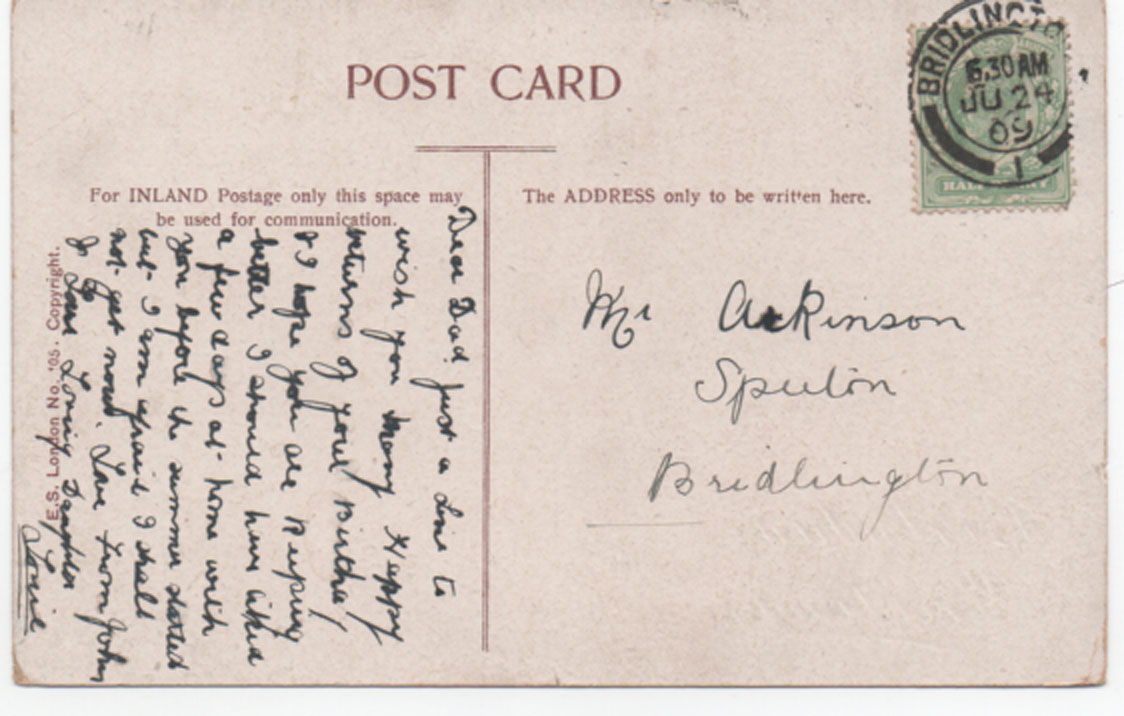 POST CARD
For INLAND Postage only this space may
be used for communication.
The ADDRESS only to be written here.
BRIDLINGTO
6.30 AM
JU 24
09
1
HALF PENNY
E.S. London No. 105. Copyright.
Dear Dad Just a Line to
wish you Many Happy
returns of your Birthday
& I hope you are Keeping
better I should have liked
a few days at home with
you before the summer started
but I am afraid I shall
not get now. Love from John
& Your Loving Daughter
Louie
Mr Atkinson
Speeton
Bridlington